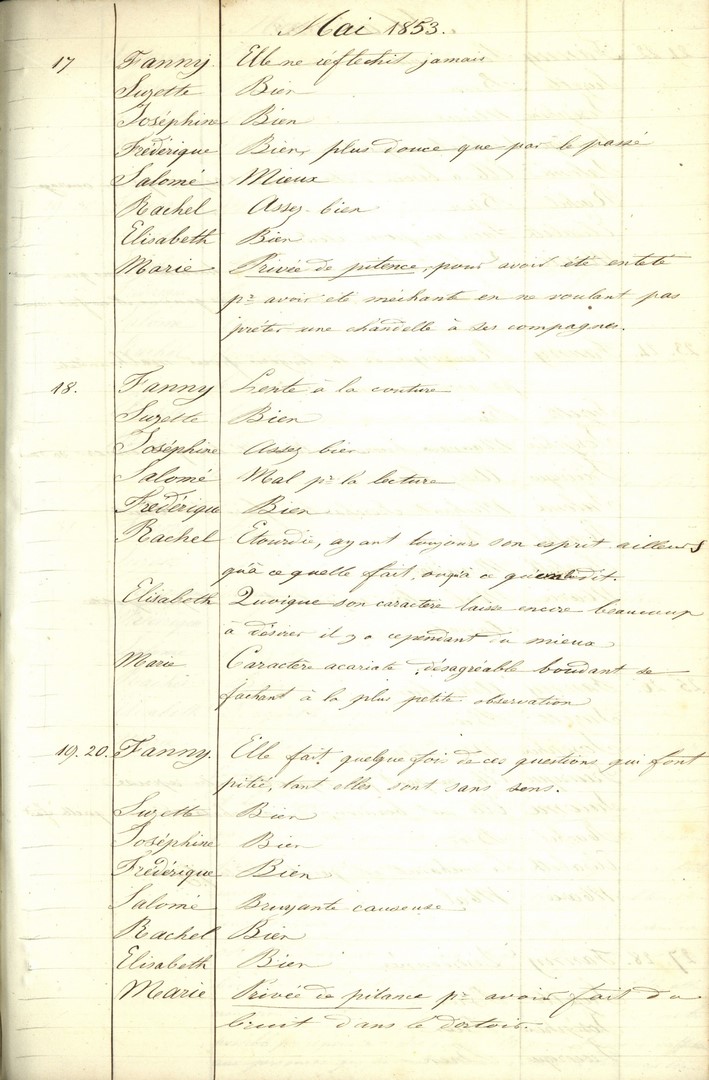 Mai 1853.
17 Fanny. Elle ne réflechit jamais
Suzette Bien
Joséphine Bien
Frédérique Bien, plus douce que par le passé
Salomé Mieux
Rachel Assez bien
Elisabeth Bien
Marie Privée de pitence, pour avoir été enteté
pr avoir été méchante en ne voulant pas
prêter une chandelle à ses compagnes.
18. Fanny Lente à la couture
Suzette Bien
Joséphine Assez bien
Salomé Mal pr la lecture
Frédérique Bien
Rachel Etourdie, ayant toujours son esprit ailleurs
qu'à ce quelle fait, ou qu'à ce qu'on lui dit.
Elisabeth Quoique son caractère laisse encore beaucoup
à désirer il y a cependant du mieux
Marie Caractère acariate, désagréable boudant se
fachant à la plus petite observation
19. 20. Fanny. Elle fait quelque fois de ces questions qui font
pitié, tant elles sont sans sens.
Suzette Bien
Joséphine Bien
Frédérique Bien
Salomé Bruyante causeuse
Rachel Bien
Elisabeth Bien
Marie Privée de pitance pr avoir fait du
bruit dans le dortoir.